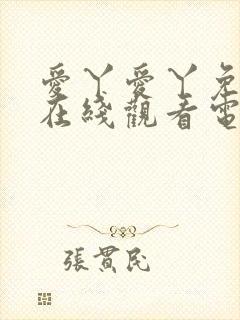 愛丫愛丫免
在綫觀看電
張貫民